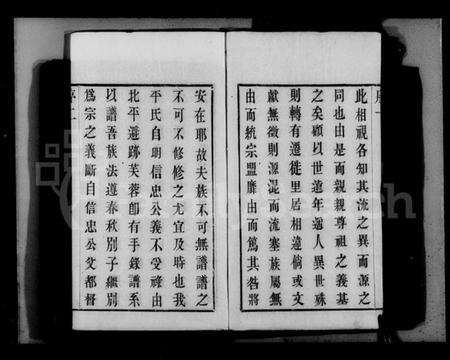 序一
此相視各知其流之異而源之
同也由是而親親尊祖之義基
之矣顧以世遠年遞人異世殊
則轉有遷徙里居相遠倘或文
獻無徵則源混而流塞族屬無
由而統宗盟靡由而篤其咎將
安在耶故夫族不可無譜譜之
不可不修修之尤宜及時也我
平氏自明信忠公義不受祿由
北平避跡芙蓉卽有手錄譜系
以譜吾族法遵春秋別子繼別
爲宗之義斷自信忠公父都督
序二